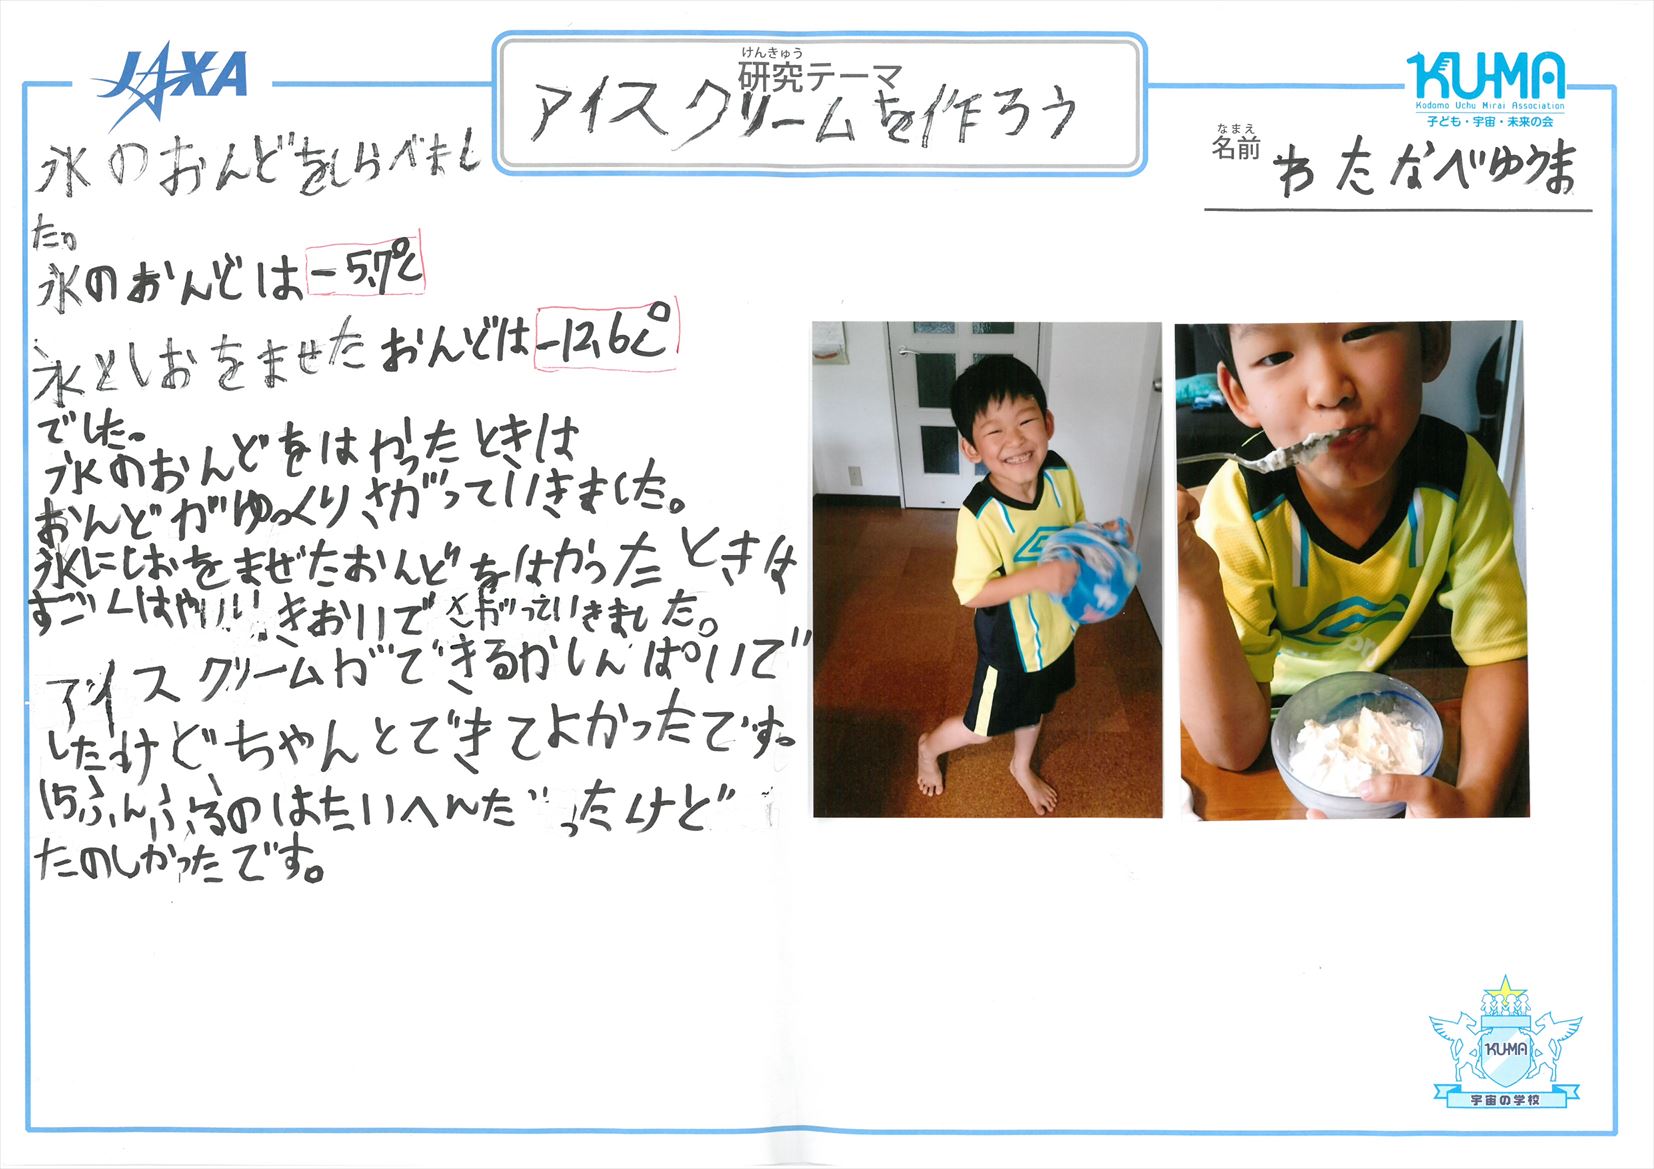 JAXA
けんきゅう
研究テーマ
アイスクリームを作ろう
KU-MA
Kodomo Uchu Mirai Association
子ども・宇宙・未来の会
なまえ
名前 わたなべゆうま
氷のおんどをしらべまし
た。
氷のおんどは-5.7℃
氷としおをませたおんどは-12.6℃
でした。
氷のおんどをはかったときは
おんどがゆっくりさがっていきました。
氷にしおをまぜたおんどをはかったときは
すごくはやいいきおいでさがっていきました。
アイスクリームができるかしんぱいで
したけどちゃんとできてよかったです。
15ふんふるのはたいへんだったけど
たのしかったです。
KU-MA
宇宙の学校